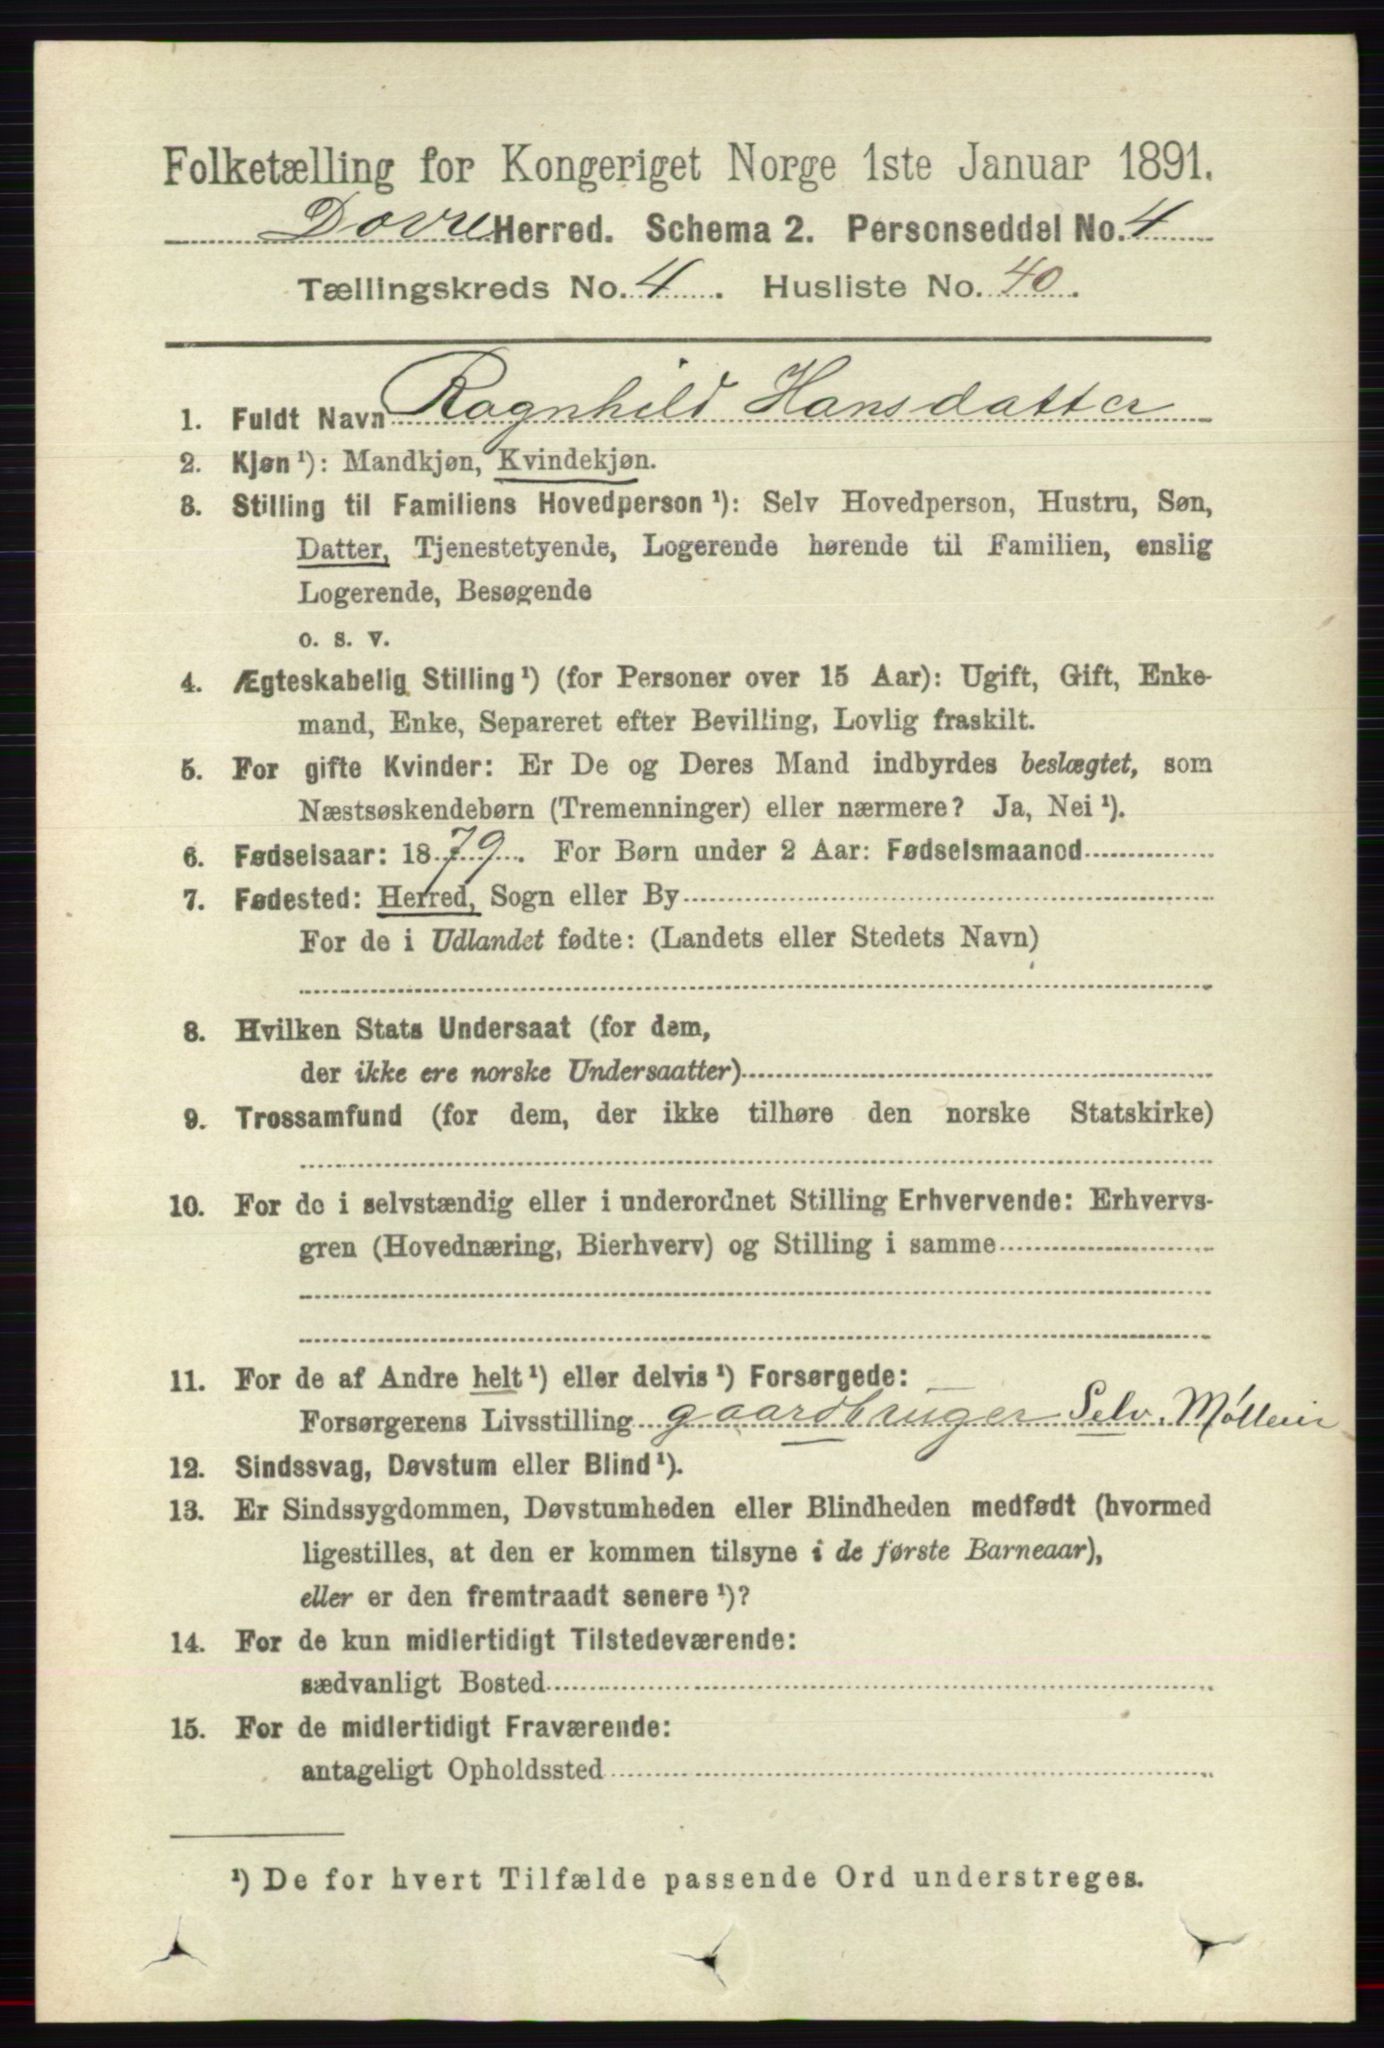 Folketælling for Kongeriget Norge 1ste Januar 1891.
Dovre Herred. Schema 2. Personseddel No. 4
Tællingskreds No. 4. Husliste No. 40.
1. Fuldt Navn Ragnhild Hansdatter
2. Kjøn¹): Mandkjøn, Kvindekjøn.
3. Stilling til Familiens Hovedperson¹): Selv Hovedperson, Hustru, Søn,
Datter, Tjenestetyende, Logerende hørende til Familien, enslig
Logerende, Besøgende
o. s. v.
4. Ægteskabelig Stilling¹) (for Personer over 15 Aar): Ugift, Gift, Enke-
mand, Enke, Separeret efter Bevilling, Lovlig fraskilt.
5. For gifte Kvinder: Er De og Deres Mand indbyrdes beslægtet, som
Næstsøskendebørn (Tremenninger) eller nærmere? Ja, Nei¹).
6. Fødselsaar: 1879. For Børn under 2 Aar: Fødselsmaanod
7. Fødested: Herred, Sogn eller By
For de i Udlandet fødte: (Landets eller Stedets Navn)
8. Hvilken Stats Undersaat (for dem,
der ikke ere norske Undersaatter)
9. Trossamfund (for dem, der ikke tilhøre den norske Statskirke)
10. For de i selvstændig eller i underordnet Stilling Erhvervende: Erhvervs-
gren (Hovednæring, Bierhverv) og Stilling i samme
11. For de af Andre helt¹) eller delvis¹) Forsørgede:
Forsørgerens Livsstilling gaardbruger Selv.
12. Sindssvag, Døvstum eller Blind¹).
13. Er Sindssygdommen, Døvstumheden eller Blindheden medfødt (hvormed
ligestilles, at den er kommen tilsyne i de første Barneaar),
eller er den fremtraadt senere¹)?
14. For de kun midlertidigt Tilstedeværende:
sædvanligt Bosted
15. For de midlertidigt Fraværende:
antageligt Opholdssted
¹) De for hvert Tilfælde passende Ord understreges.